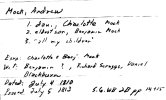 Mock, Andrew
1. dau., Charlotte Mock
2. eldest son, Benjamin Mock
3. "all my children"
Exrs: Charlotte & Benj. Mock
Wit: Benjamin, Richard Scruggs, Daniel
Blackburn
Dated: July 4 1810
Issued: July 5 1813